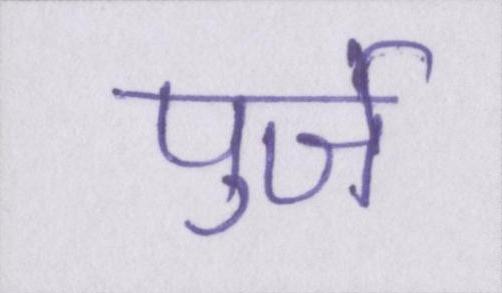 पुर्जे